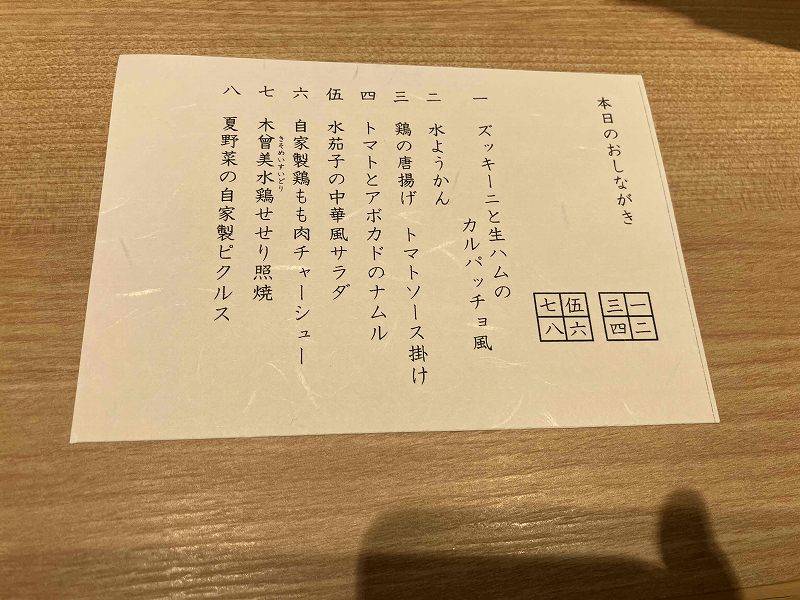 本日のおしながき
三一
四二
七伍
八六
一 ズッキーニと生ハムの
カルパッチョ風
二 水ようかん
三 鶏の唐揚げ トマトソース掛け
四 トマトとアボカドのナムル
伍 水茄子の中華風サラダ
六 自家製鶏もも肉チャーシュー
七 木曾美水鶏せせり照焼
きそめいすいどり
八 夏野菜の自家製ピクルス